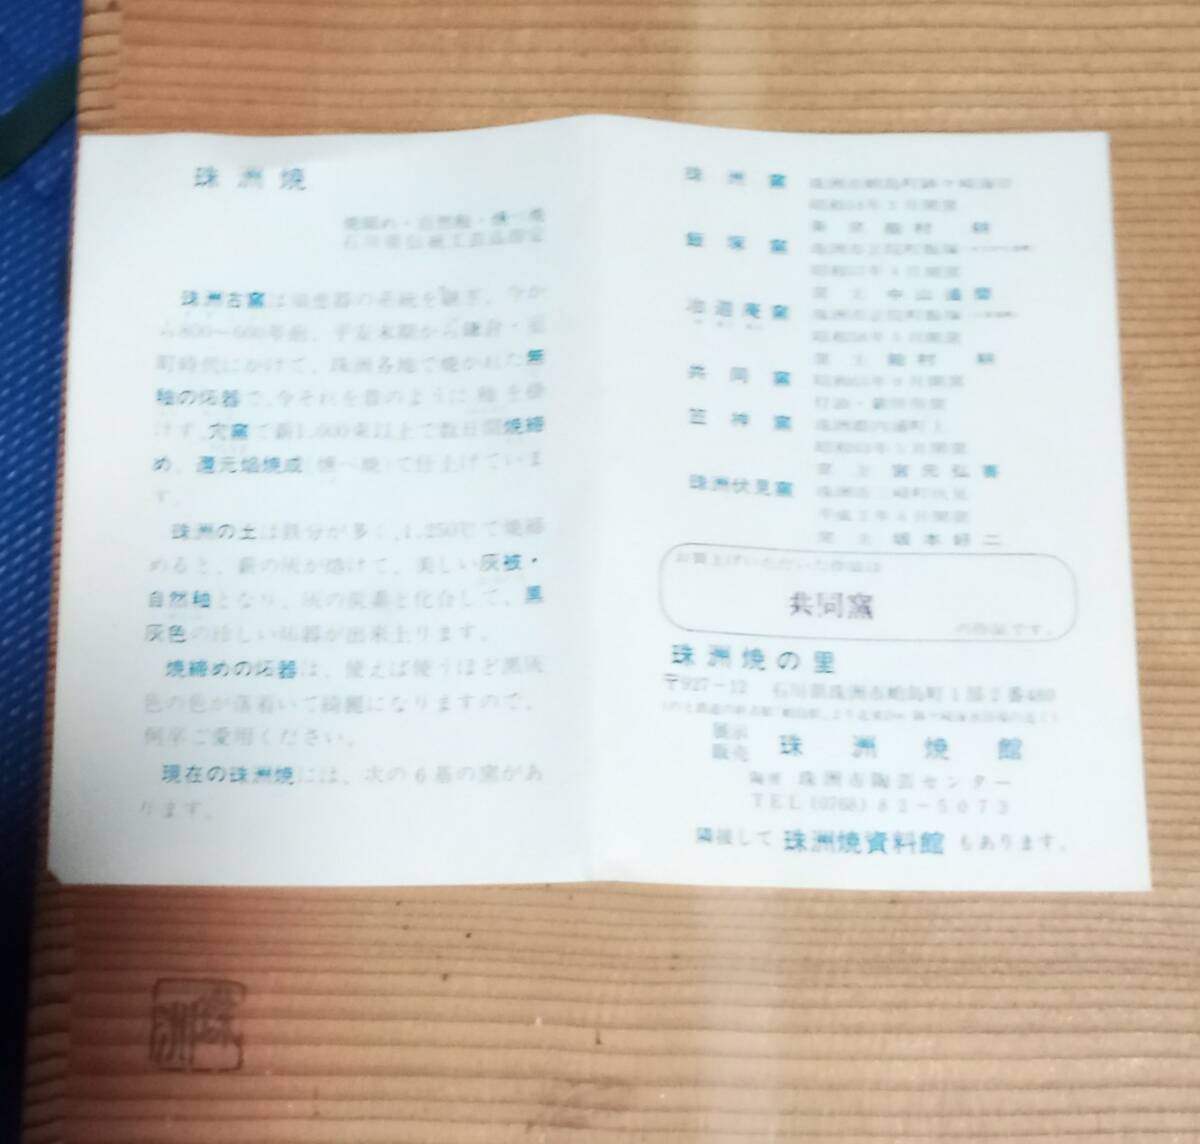 珠洲焼
焼締め・自然釉・燻べ焼
石川県伝統工芸品指定
珠洲古窯は須恵器の系統を継ぎ、今か
ら800〜600年前、平安末期から鎌倉・室
町時代にかけて、珠洲各地で焼かれた無
釉の炻器で、今それを昔のように釉を掛
けず、穴窯で薪1,000束以上で数日間焼締
め、還元焰焼成(燻べ焼)で仕上げていま
す。
珠洲の土は鉄分が多く、1,250℃で焼締
めると、薪の灰が熔けて、美しい灰被・
自然釉となり、灰の炭素と化合して、黒
灰色の珍しい炻器が出来上ります。
焼締めの炻器は、使えば使うほど黒灰
色の色が落着いて綺麗になりますので、
何卒ご愛用ください。
現在の珠洲焼には、次の6基の窯があ
ります。
珠洲窯
昭和 年 月開窯
能村 耕
飯塚窯 珠洲市正院町飯塚
昭和 年 月開窯
窯主 中山達磨
窯 珠洲市正院町飯塚
昭和 年 月開窯
窯主 能村 耕
共同窯 昭和 年 月開窯
灯油・薪併用窯
笠神窯 珠洲郡内浦町上
昭和 年 月開窯
窯主 宮元弘喜
珠洲伏見窯 珠洲市三崎町伏見
平成 年 月開窯
窯主 坂本好二
お買上げいただいた作品は
共同窯
の作品です。
珠洲焼の里
〒927-12 石川県珠洲市蛸島町1部2番480
展示
販売 珠洲焼館
隣接 珠洲市陶芸センター
TEL(0768)82-5073
隣接して 珠洲焼資料館 もあります。
珠洲